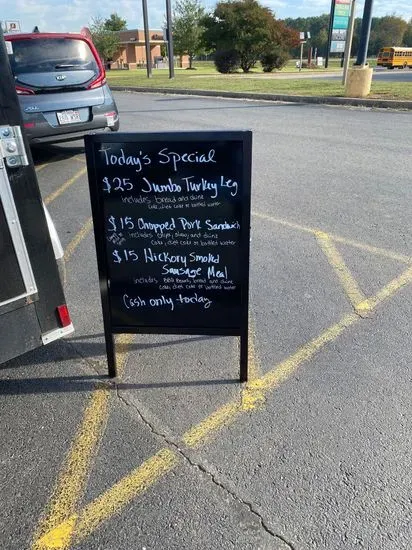 Today's Special
$25 Jumbo Turkey Leg
includes bread and drink
Coke, diet coke or bottled water
$15 Chopped Pork Sandwich
includes chips, slaw, and drink
Coke, diet coke or bottled water
$15 Hickory Smoked
Sausage Meal
includes BBQ Beans, bread and drink
Coke, diet coke or bottled water
Cash only today